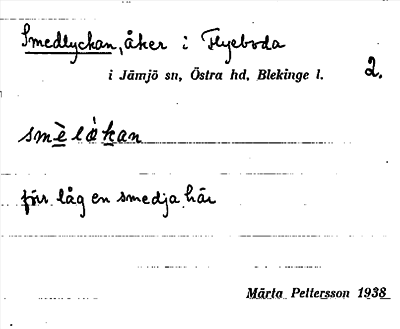 Smedlyckan, åker i Flyeboda
i Jämjö sn, Östra hd, Blekinge l. 2.
smèlàkan
förr låg en smedja här
Märta Pettersson 1938